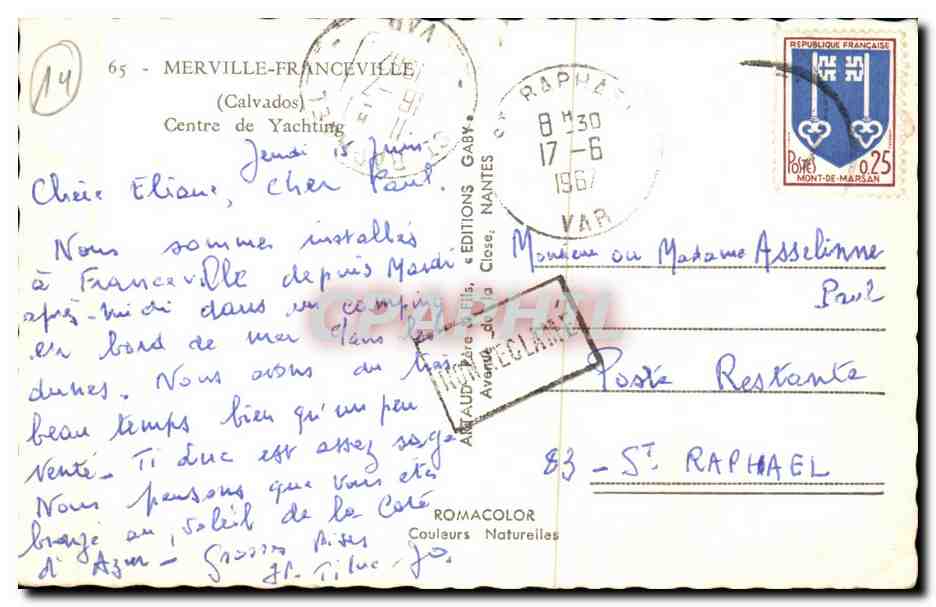 14
65 - MERVILLE-FRANCEVILLE
(Calvados)
Centre de Yachting
Jeudi 15 Juin
Chère Eliane, Cher Paul.
Nous sommes installés
à Franceville depuis Mardi
après-midi dans un camping
en bord de mer dans les
dunes. Nous avons du très
beau temps bien qu'un peu
venté. Ti Luc est assez sage
Nous pensons que vous etes
bronzé au soleil de la Cote
d'Azur - Grosses Bises
ARTAUD Père & Fils, "EDITIONS GABY"
Avenue de la Close, NANTES
ROMACOLOR
Couleurs Naturelles
VAR
ST RAPHAEL
8H30
17-6
1967
VAR
REPUBLIQUE FRANÇAISE
POSTES 0,25
MONT-DE-MARSAN
Monsieur ou Madame Asselinne
Paul
Poste Restante
83 - ST. RAPHAEL
NON RECLAMÉ
CPAPHIL